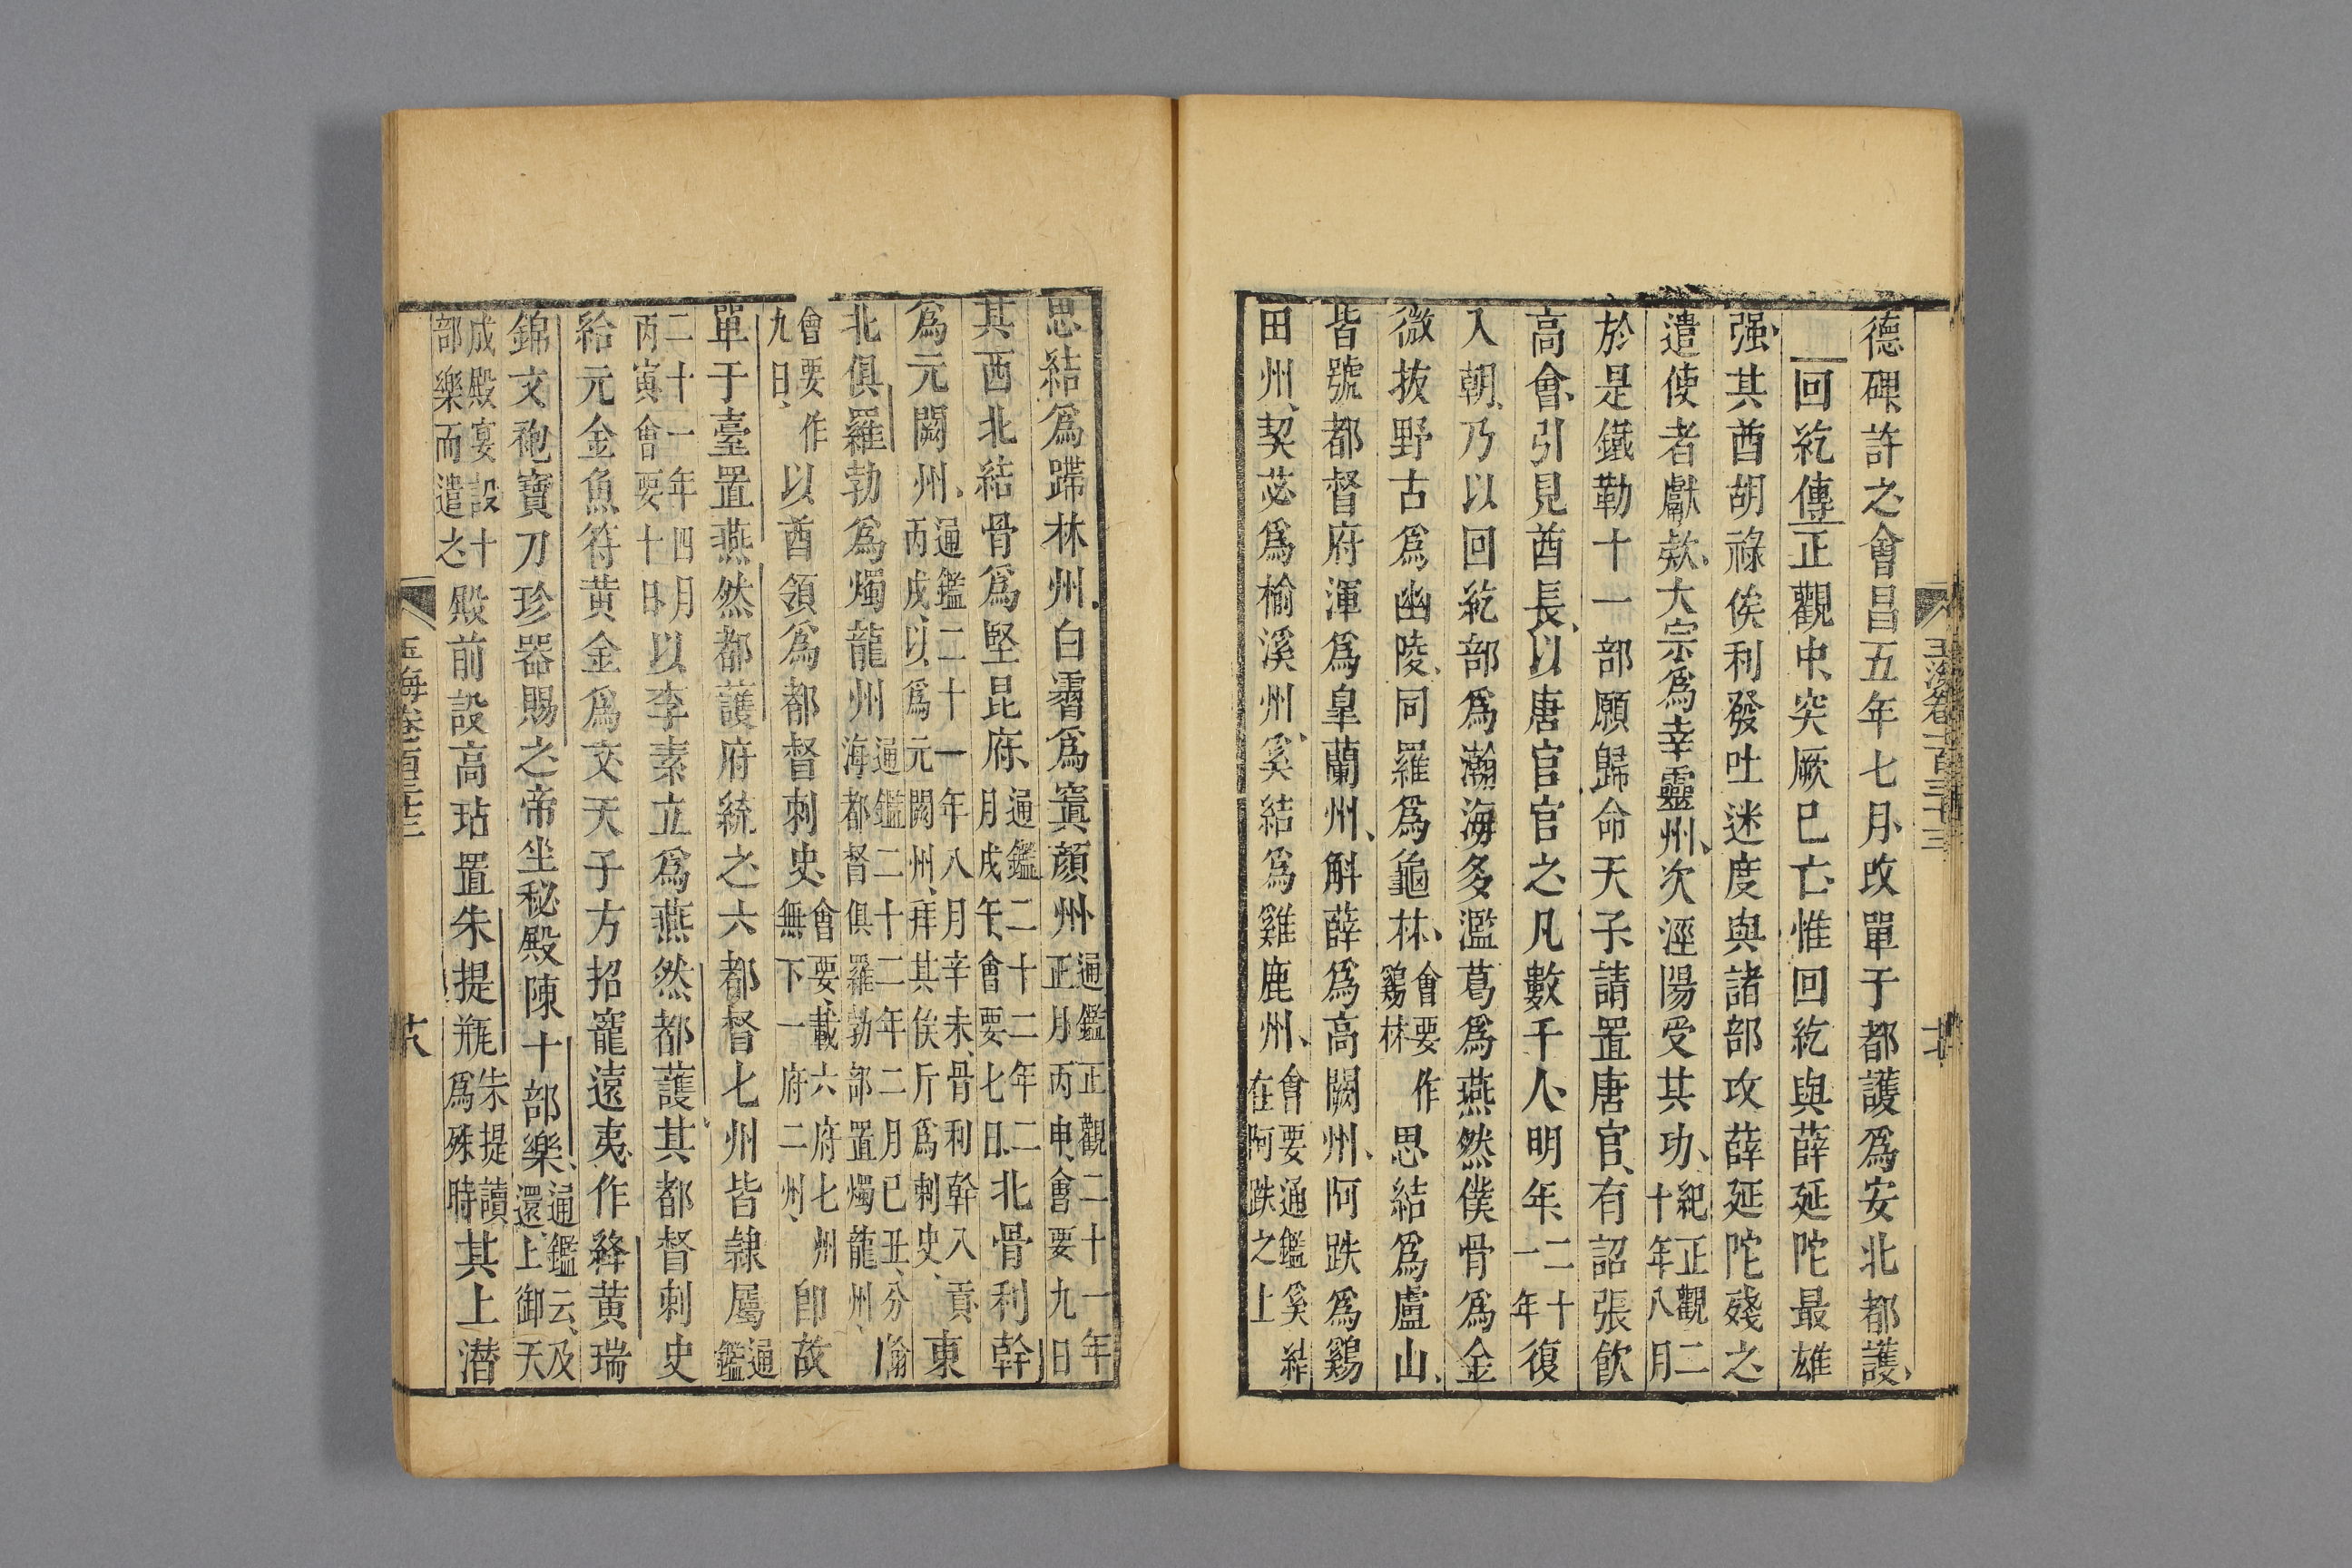 德碑許之會昌五年七月改單于都護爲安北都護
回紇傳正觀中突厥已亡惟回紇與薛延陀最雄
强其酋胡祿俟利發吐迷度與諸部攻薛延陀殘之
遣使者獻欵太宗爲幸靈州次涇陽受其功紀正觀二十年八月
於是鐵勒十一部願歸命天子請置唐官有詔張飲
高會引見酋長以唐官官之凡數千人明年二十一年復
入朝乃以回紇部爲瀚海多濫葛爲燕然僕骨爲金
微拔野古爲幽陵同羅爲龜林會要作鷄林思結爲盧山
皆號都督府渾爲皐蘭州斛薛爲高闕州阿跌爲鷄
田州契苾爲榆溪州奚結爲雞鹿州會要通鑑奚結在阿跌之上
思結爲蹛林州白霫爲寘顏州通鑑正觀二十一年正月丙申會要九日
其西北結骨爲堅昆府通鑑二十二年二月戊午會要七日北骨利幹
爲元闕州通鑑二十一年八月辛未骨利幹入貢丙戌以爲元闕州拜其俟斤爲刺史東
北俱羅勃爲燭龍州通鑑二十二年二月已丑分瀚海都督俱羅勃部置燭龍州
會要作九日以酋領爲都督刺史會要載六府七州無下一府二州卽故
單于臺置燕然都護府統之六都督七州皆隷屬通鑑
二十一年四月丙寅會要十日以李素立爲燕然都護其都督刺史
給元金魚符黄金爲文天子方招寵遠夷作絳黄瑞
錦文袍寶刀珍器賜之帝坐秘殿陳十部樂通鑑云及還上御天
成殿宴設十部樂而遣之殿前設高坫置朱提瓶朱提讀爲殊時其上潛